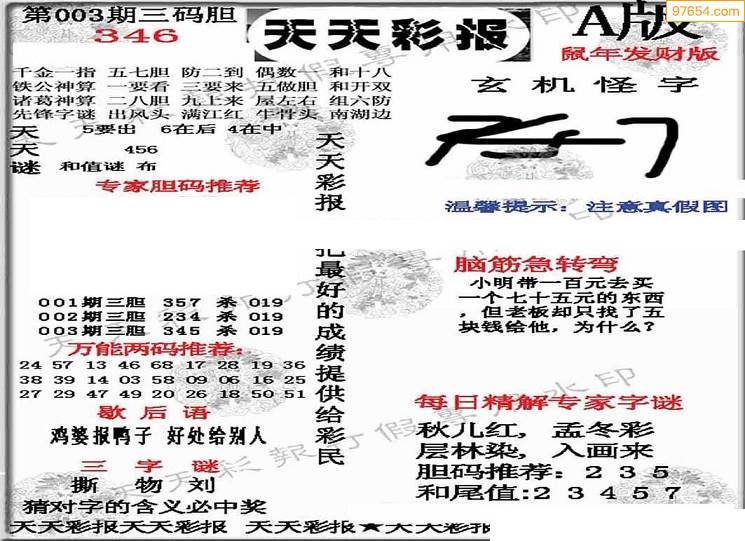 第003期三码胆
346
天天彩报
A版
97654.com
鼠年发财版
千金一指 五七胆 防二到 偶数 和十八
铁公神算 一要看 三要来 五做胆 和开双
诸葛神算 二八胆 九上来 屋左右 组六防
先锋字谜 出风头 满江红 牛骨头 南湖边
天 5要出 6在后 4在中
天 456
谜 和值谜 布
专家胆码推荐
001期三胆 357 杀 019
002期三胆 234 杀 019
003期三胆 245 杀 019
万能两码推荐:
24 57 13 46 68 17 28 19 36
38 39 14 03 58 09 06 16 25
27 29 47 49 20 26 18 50 51
歇后语
鸡婆报鸭子 好处给别人
三字谜
撕 物 刘
猜对字的含义必中奖
天天彩报
把最好的成绩提供给彩民
玄机怪字
温馨提示: 注意真假图
脑筋急转弯
小明带一百元去买
一个七十五元的东西
,但老板却只找了五
块钱给他,为什么?
每日精解专家字谜
秋儿红, 孟冬彩
层林染, 入画来
胆码推荐: 2 3 5
和尾值:2 3 4 5 7
天天彩报天天彩报 天天彩报★天天彩报